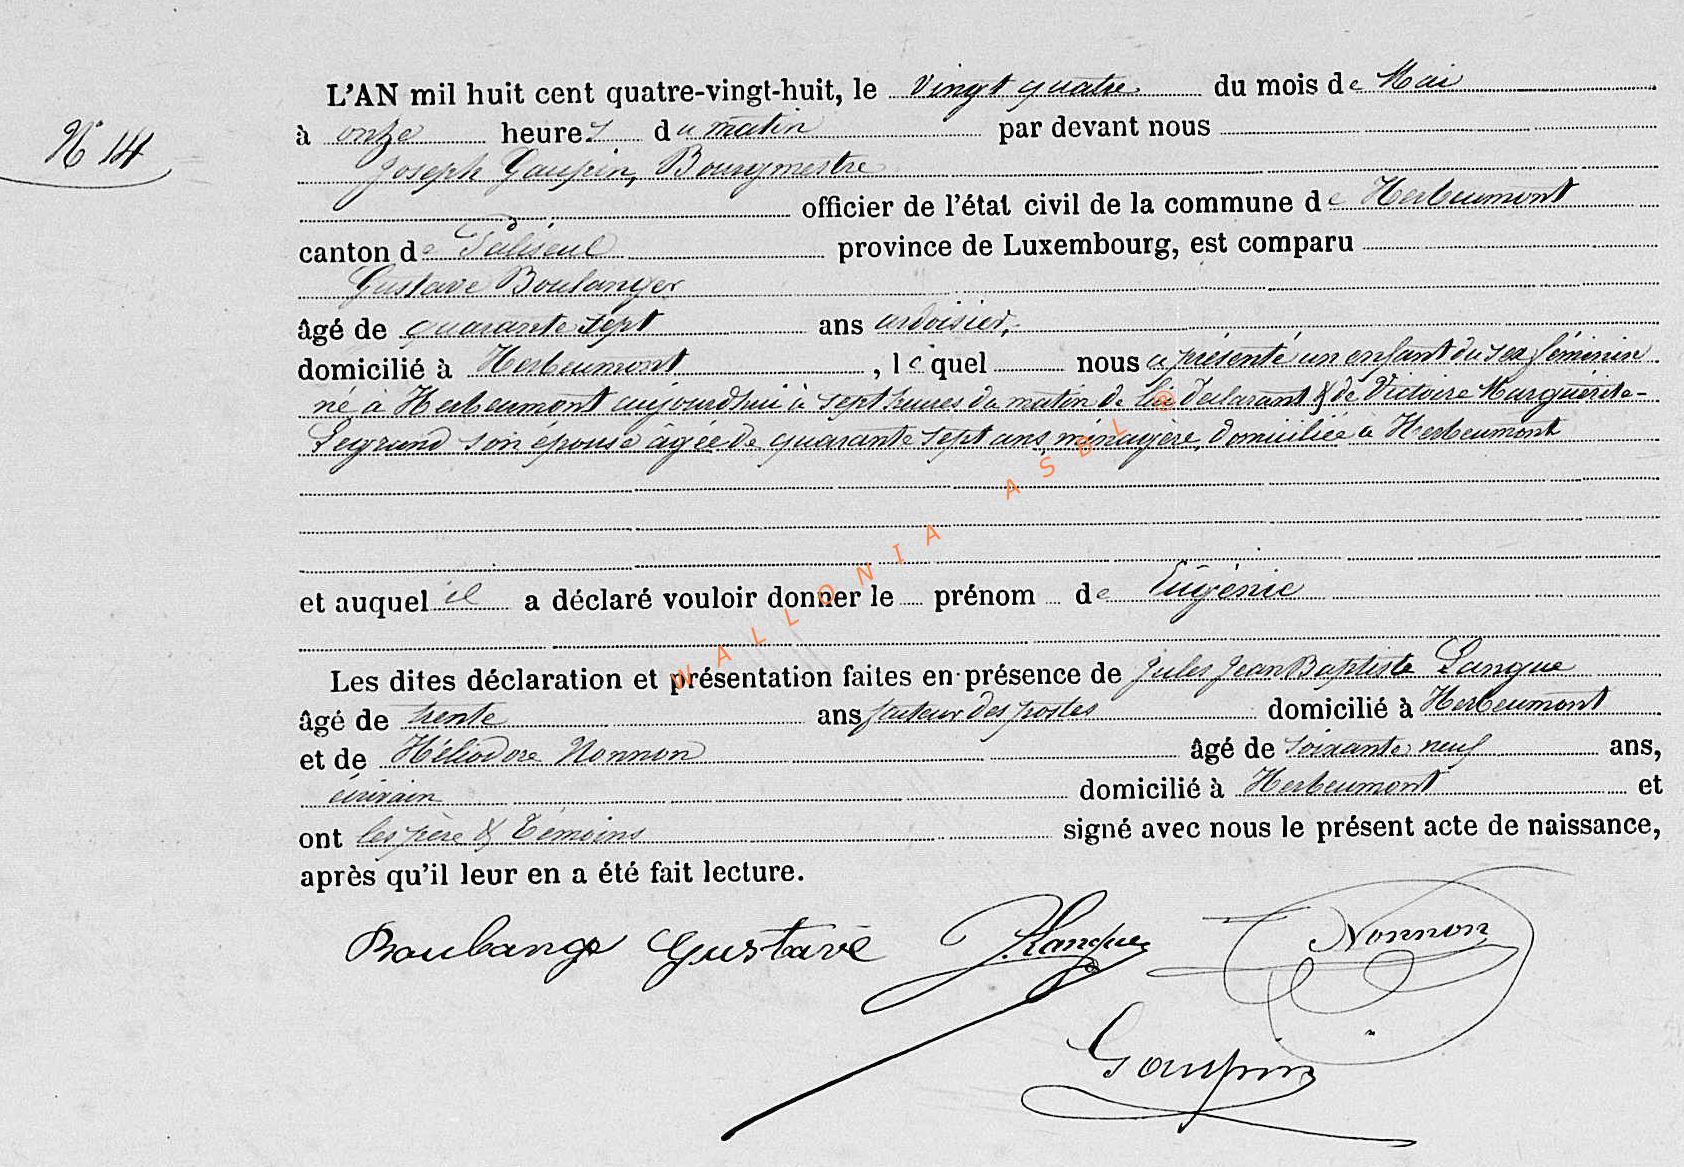 L'AN mil huit cent quatre-vingt-huit, le vingt quatre du mois de Mai
N° 14
à onze heures du matin par devant nous
Joseph Gaupin, Bourgmestre
officier de l'état civil de la commune de Herbeumont
canton de Paliseul province de Luxembourg, est comparu
Gustave Boulanger
âgé de quarante sept ans ardoisier,
domicilié à Herbeumont, lequel nous a présenté un enfant du sex féminin
né à Herbeumont aujourdhui à sept heures du matin de lui déclarant & de Victoire Marguérite-
Legrand son épouse âgée de quarante sept ans, ménagère, domiciliée à Herbeumont
et auquel il a déclaré vouloir donner le prénom de Eugénie
Les dites déclaration et présentation faites en présence de Jules Jean Baptiste Lanque
âgé de trente ans facteur des postes domicilié à Herbeumont
et de Héliodore Nonnon âgé de soixante neuf ans,
écrivain domicilié à Herbeumont et
ont les père & témoins signé avec nous le présent acte de naissance,
après qu'il leur en a été fait lecture.
Boulange Gustave J. Lanque Nonnon
Gaupin
WALLONIA ASBL ®